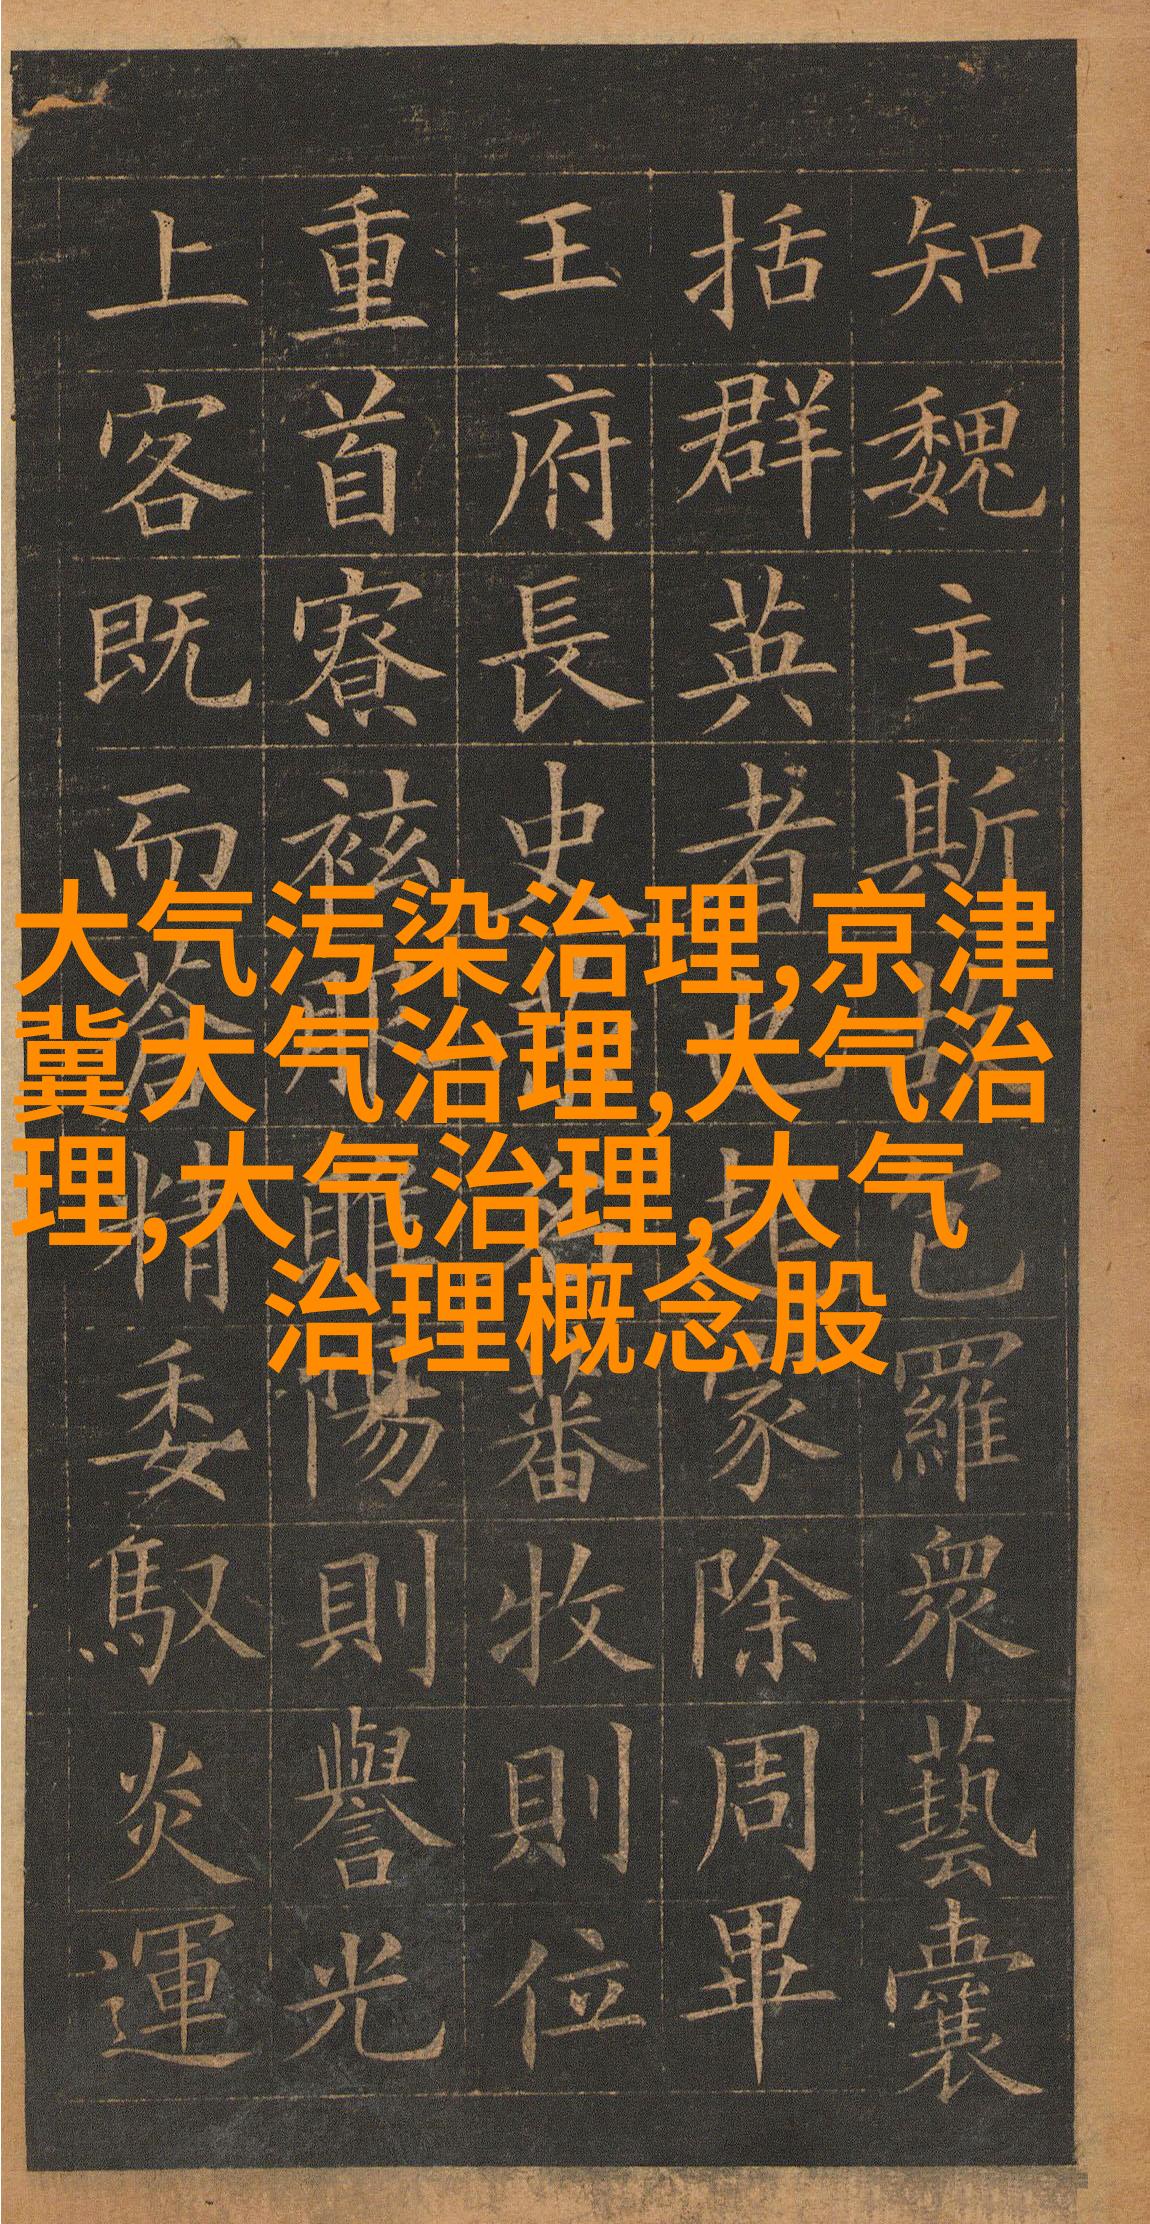 知魏主斯包羅衆藝囊
括群英者也起家除周畢
王府長史蕃牧則位
重首寮袨服睢陽則譽光
上客既而蒼精委馭炎運
大气污染治理,京津
冀大气治理,大气治
理,大气治理,大气
治理概念股